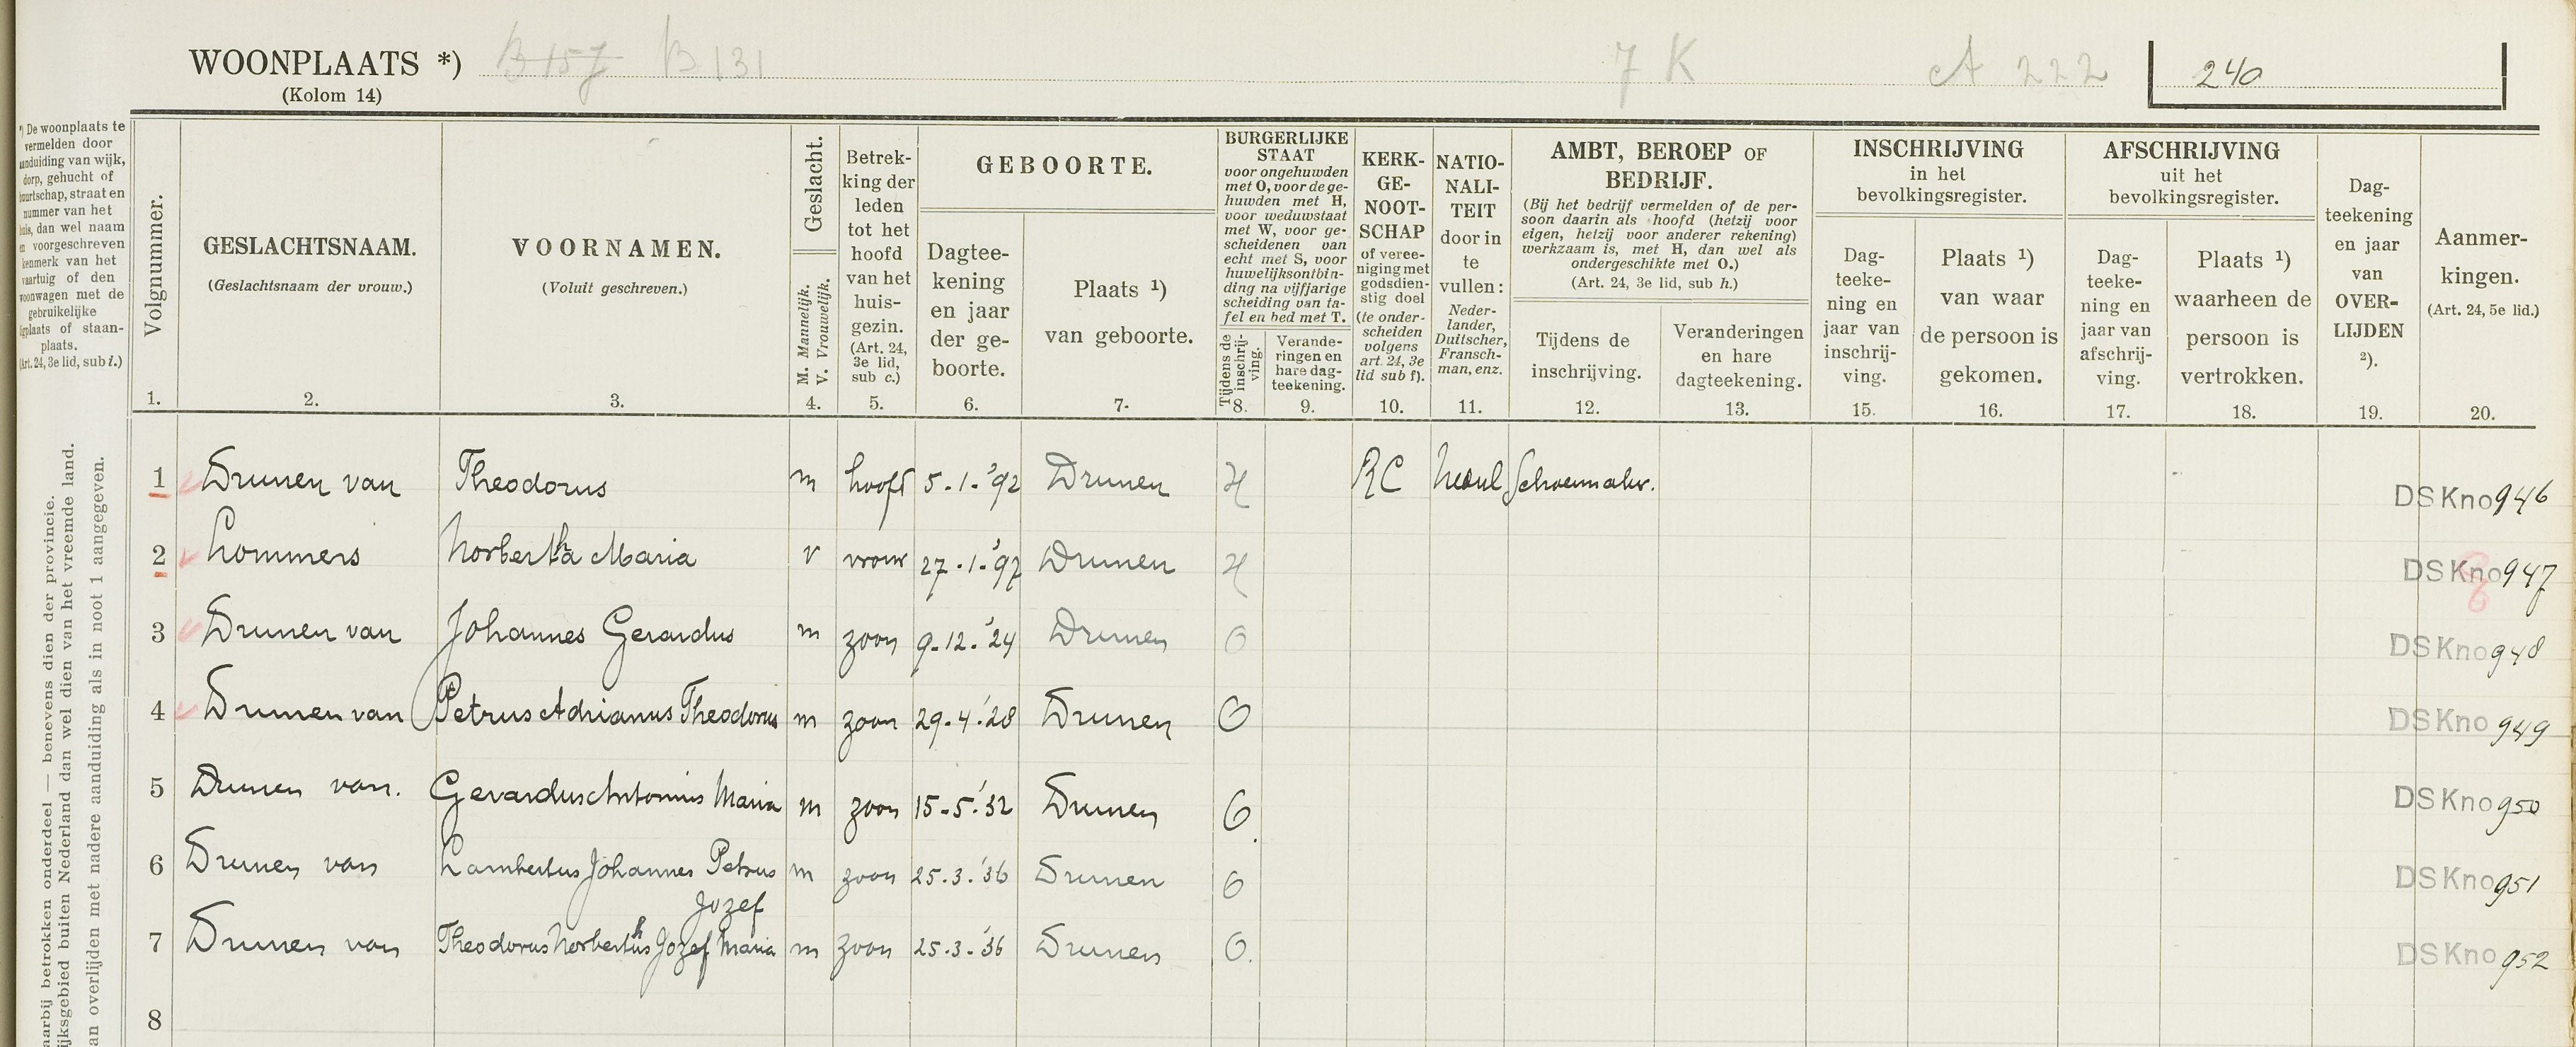 WOONPLAATS *) B 157 B 131 7 K A 222 240
(Kolom 14)
*) De woonplaats te
vermelden door
aanduiding van wijk,
dorp, gehucht of
buurtschap, straat en
nummer van het
huis, dan wel naam
en voorgeschreven
kenmerk van het
vaartuig of den
woonwagen met de
gebruikelijke
ligplaats of staan-
plaats.
(Art. 24, 3e lid, sub i.)
aarbij betrokken onderdeel — benevens dien der provincie.
ijksgebied buiten Nederland dan wel dien van het vreemde land.
an overlijden met nadere aanduiding als in noot 1 aangegeven.
Volgnummer.
1.
GESLACHTSNAAM.
(Geslachtsnaam der vrouw.)
2.
VOORNAMEN.
(Voluit geschreven.)
3.
Geslacht.
M. Mannelijk.
V. Vrouwelijk.
4.
Betrek-
king der
leden
tot het
hoofd
van het
huis-
gezin.
(Art. 24,
3e lid,
sub c.)
5.
GEBOORTE.
Dagtee-
kening
en jaar
der ge-
boorte.
6.
Plaats ¹)
van geboorte.
7.
BURGERLIJKE
STAAT
voor ongehuwden
met O, voor de ge-
huwden met H,
voor weduwstaat
met W, voor ge-
scheidenen van
echt met S, voor
huwelijksontbin-
ding na vijfjarige
scheiding van ta-
fel en bed met T.
Tijdens de
inschrij-
ving.
8.
Verande-
ringen en
hare dag-
teekening.
9.
KERK-
GE-
NOOT-
SCHAP
of veree-
niging met
godsdien-
stig doel
(te onder-
scheiden
volgens
art. 24, 3e
lid sub f).
10.
NATIO-
NALI-
TEIT
door in
te
vullen:
Neder-
lander,
Duitscher,
Fransch-
man, enz.
11.
AMBT, BEROEP OF
BEDRIJF.
(Bij het bedrijf vermelden of de per-
soon daarin als hoofd (hetzij voor
eigen, hetzij voor anderer rekening)
werkzaam is, met H, dan wel als
ondergeschikte met O.)
(Art. 24, 3e lid, sub h.)
Tijdens de
inschrijving.
12.
Veranderingen
en hare
dagteekening.
13.
INSCHRIJVING
in het
bevolkingsregister.
Dag-
teeke-
ning en
jaar van
inschrij-
ving.
15.
Plaats ¹)
van waar
de persoon is
gekomen.
16.
AFSCHRIJVING
uit het
bevolkingsregister.
Dag-
teeke-
ning en
jaar van
afschrij-
ving.
17.
Plaats ¹)
waarheen de
persoon is
vertrokken.
18.
Dag-
teekening
en jaar
van
OVER-
LIJDEN
²).
19.
Aanmer-
kingen.
(Art. 24, 5e lid.)
20.
1 Drunen van Theodorus m hooft 5.1.'92 Drunen H RC Nederl Schoenmaker. DSKno 946
2 Lommers Norbertha Maria v vrouw 27.1.'92 Drunen H DSKno 947
3 Drunen van Johannes Gerardus m zoon 9.12.'24 Drunen O DSKno 948
4 Drunen van Petrus Adrianus Theodorus m zoon 29.4.'28 Drunen O DSKno 949
5 Drunen van. Gerardus Antonius Maria m zoon 15.5.'32 Drunen O. DSKno 950
6 Drunen van Lambertus Johannes Petrus m zoon 25.3.'36 Drunen O DSKno 951
Jozef
7 Drunen van Theodorus Norberthus Jozef Maria m zoon 25.3.'36 Drunen O. DSKno 952
8